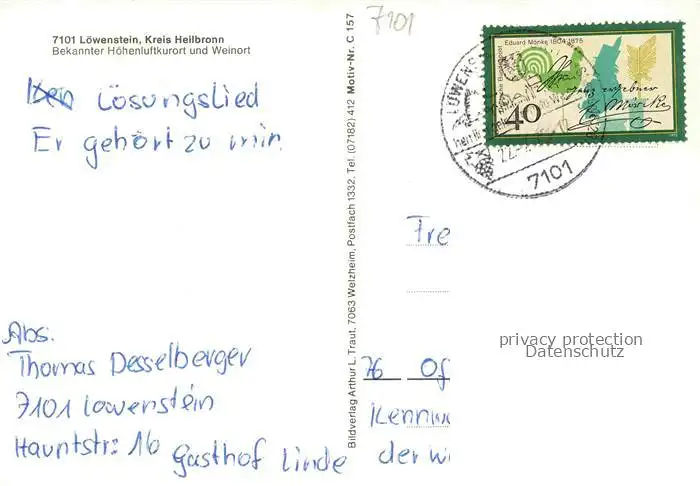 7101 Löwenstein, Kreis Heilbronn
Bekannter Höhenluftkurort und Weinort
7101
Lösungslied
Er gehört zu mir
Abs.
Thomas Desselberger
7101 Lowenstein
Hauntstr. 16 Gasthof Linde
Bildverlag Arthur L. Traut, 7063 Welzheim, Postfach 1332, Tel. (07182) 412 Motiv-Nr. C 157
Eduard Mörike 1804-1875
40
7101
Fre
76 Of
Kennw
der w
privacy protection
Datenschutz